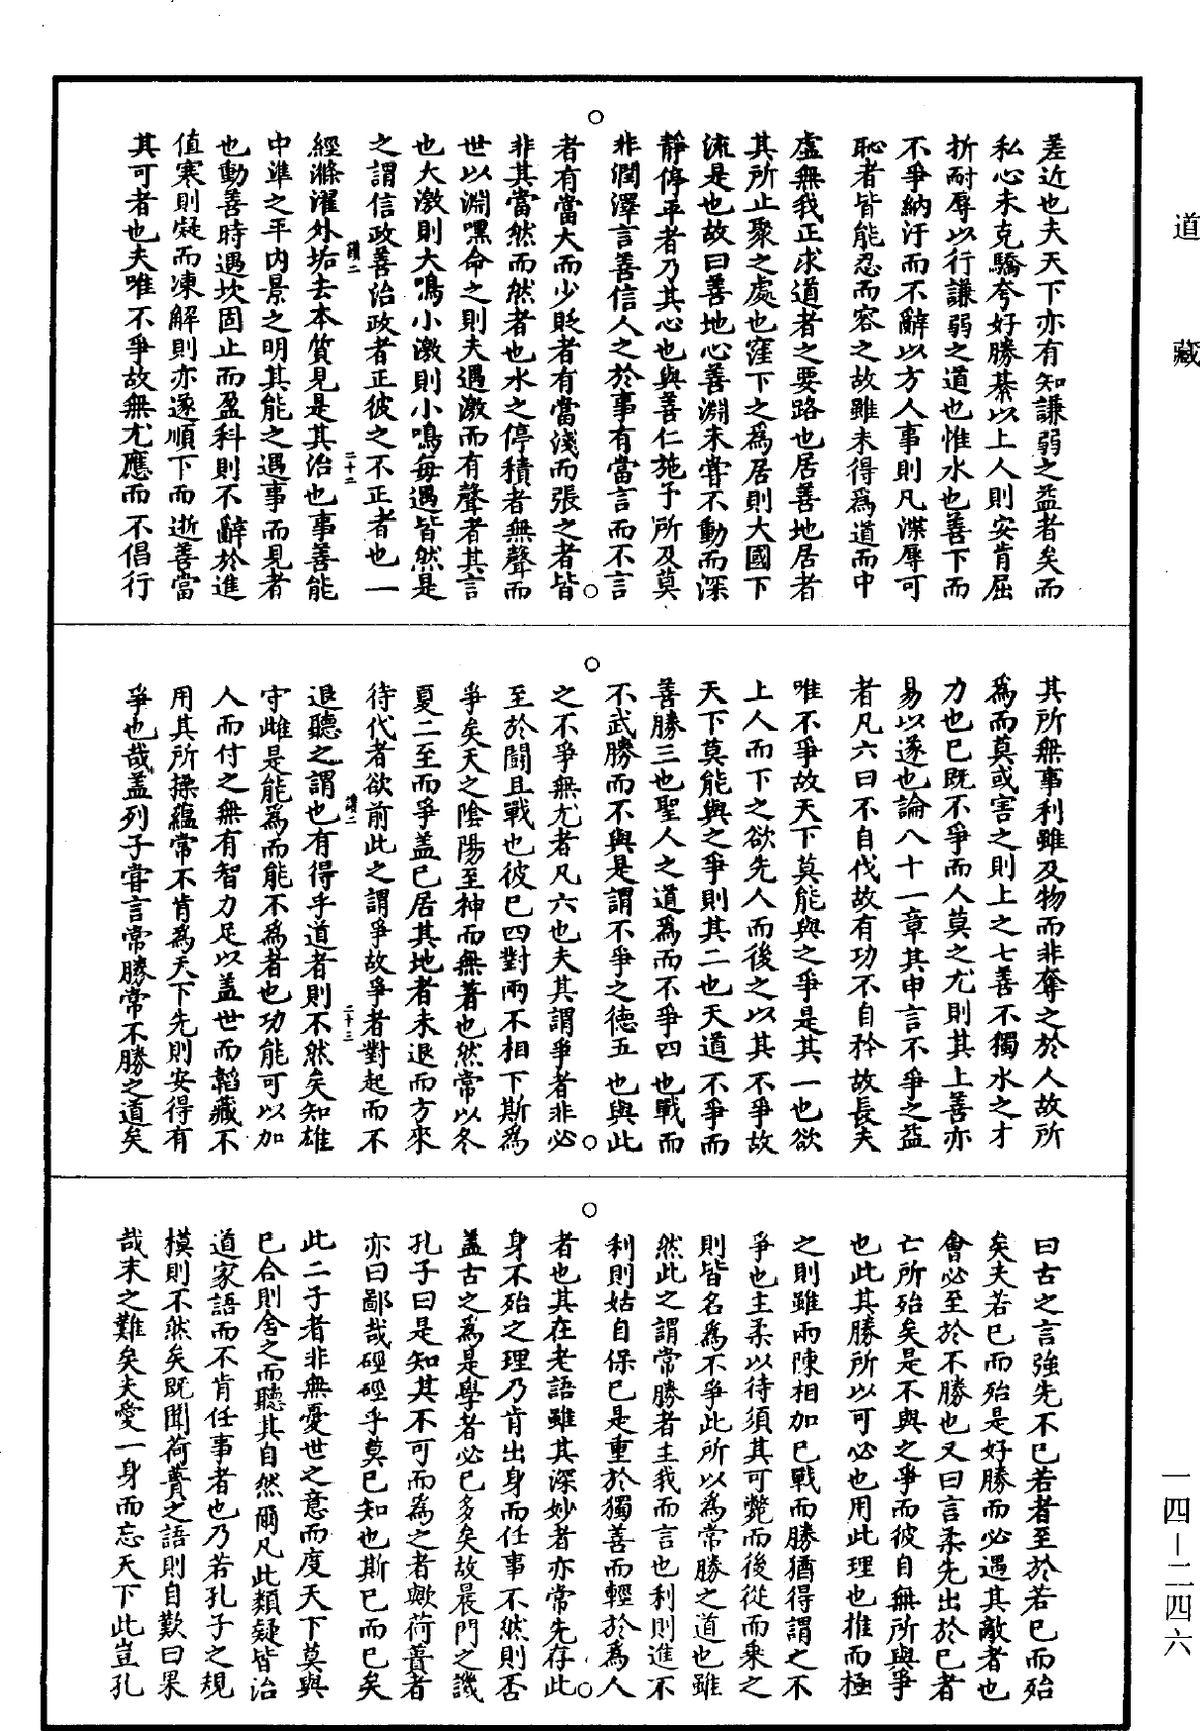 道藏
差近也夫天下亦有知謙弱之益者矣而
私心未克驕夸好勝綦以上人則安肯屈
折耐辱以行謙弱之道也惟水也善下而
不爭納汙而不辭以方人事則凡渫辱可
恥者皆能忍而容之故雖未得為道而中
虛無我正求道者之要路也居善地居者
其所止聚之處也窪下之為居則大國下
流是也故曰善地心善淵未嘗不動而深
靜停平者乃其心也與善仁施予所及莫
非潤澤言善信人之於事有當言而不言
者有當大而少貶者有當淺而張之者皆
非其當然而然者也水之停積者無聲而
世以淵嘿命之則夫遇激而有聲者其言
也大激則大鳴小激則小鳴每遇皆然是
之謂信政善治政者正彼之不正者也一
讃二 二十二
經滌濯外垢去本質見是其治也事善能
中準之平內景之明其能之遇事而見者
也動善時遇坎固止而盈科則不辭於進
值寒則凝而凍解則亦遂順下而逝善當
其可者也夫唯不爭故無尤應而不倡行
其所無事利雖及物而非奪之於人故所
為而莫或害之則上之七善不獨水之才
力也已既不爭而人莫之尤則其上善亦
易以遂也論八十一章其申言不爭之益
者凡六曰不自伐故有功不自矜故長夫
唯不爭故天下莫能與之爭是其一也欲
上人而下之欲先人而後之以其不爭故
天下莫能與之爭則其二也天道不爭而
善勝三也聖人之道為而不爭四也戰而
不武勝而不與是謂不爭之德五也與此
之不爭無尤者凡六也夫其謂爭者非必
至於鬪且戰也彼已四對兩不相下斯為
爭矣天之陰陽至神而無著也然常以冬
夏二至而爭蓋已居其地者未退而方來
待代者欲前此之謂爭故爭者對起而不
讃二 二十三
退聽之謂也有得乎道者則不然矣知雄
守雌是能為而能不為者也功能可以加
人而付之無有智力足以蓋世而韜藏不
用其所操蘊常不肯為天下先則安得有
爭也哉蓋列子嘗言常勝常不勝之道矣
曰古之言強先不已若者至於若已而殆
矣夫若已而殆是好勝而必遇其敵者也
會必至於不勝也又曰言柔先出於已者
亡所殆矣是不與之爭而彼自無所與爭
也此其勝所以可必也用此理也推而極
之則雖兩陳相加已戰而勝猶得謂之不
爭也主柔以待須其可斃而後從而乘之
則皆名為不爭此所以為常勝之道也雖
然此之謂常勝者主我而言也利則進不
利則姑自保已是重於獨善而輕於為人
者也其在老語雖其深妙者亦常先存此
身不殆之理乃肯出身而任事不然則否
蓋古之為是學者必已多矣故晨門之譏
孔子曰是知其不可而為之者歟荷蕢者
亦曰鄙哉硜硜乎莫已知也斯已而已矣
此二子者非無憂世之意而度天下莫與
已合則舍之而聽其自然爾凡此類疑皆治
道家語而不肯任事者也乃若孔子之規
模則不然矣既聞荷蕢之語則自歎曰果
哉末之難矣夫愛一身而忘天下此豈孔
一四—二四六